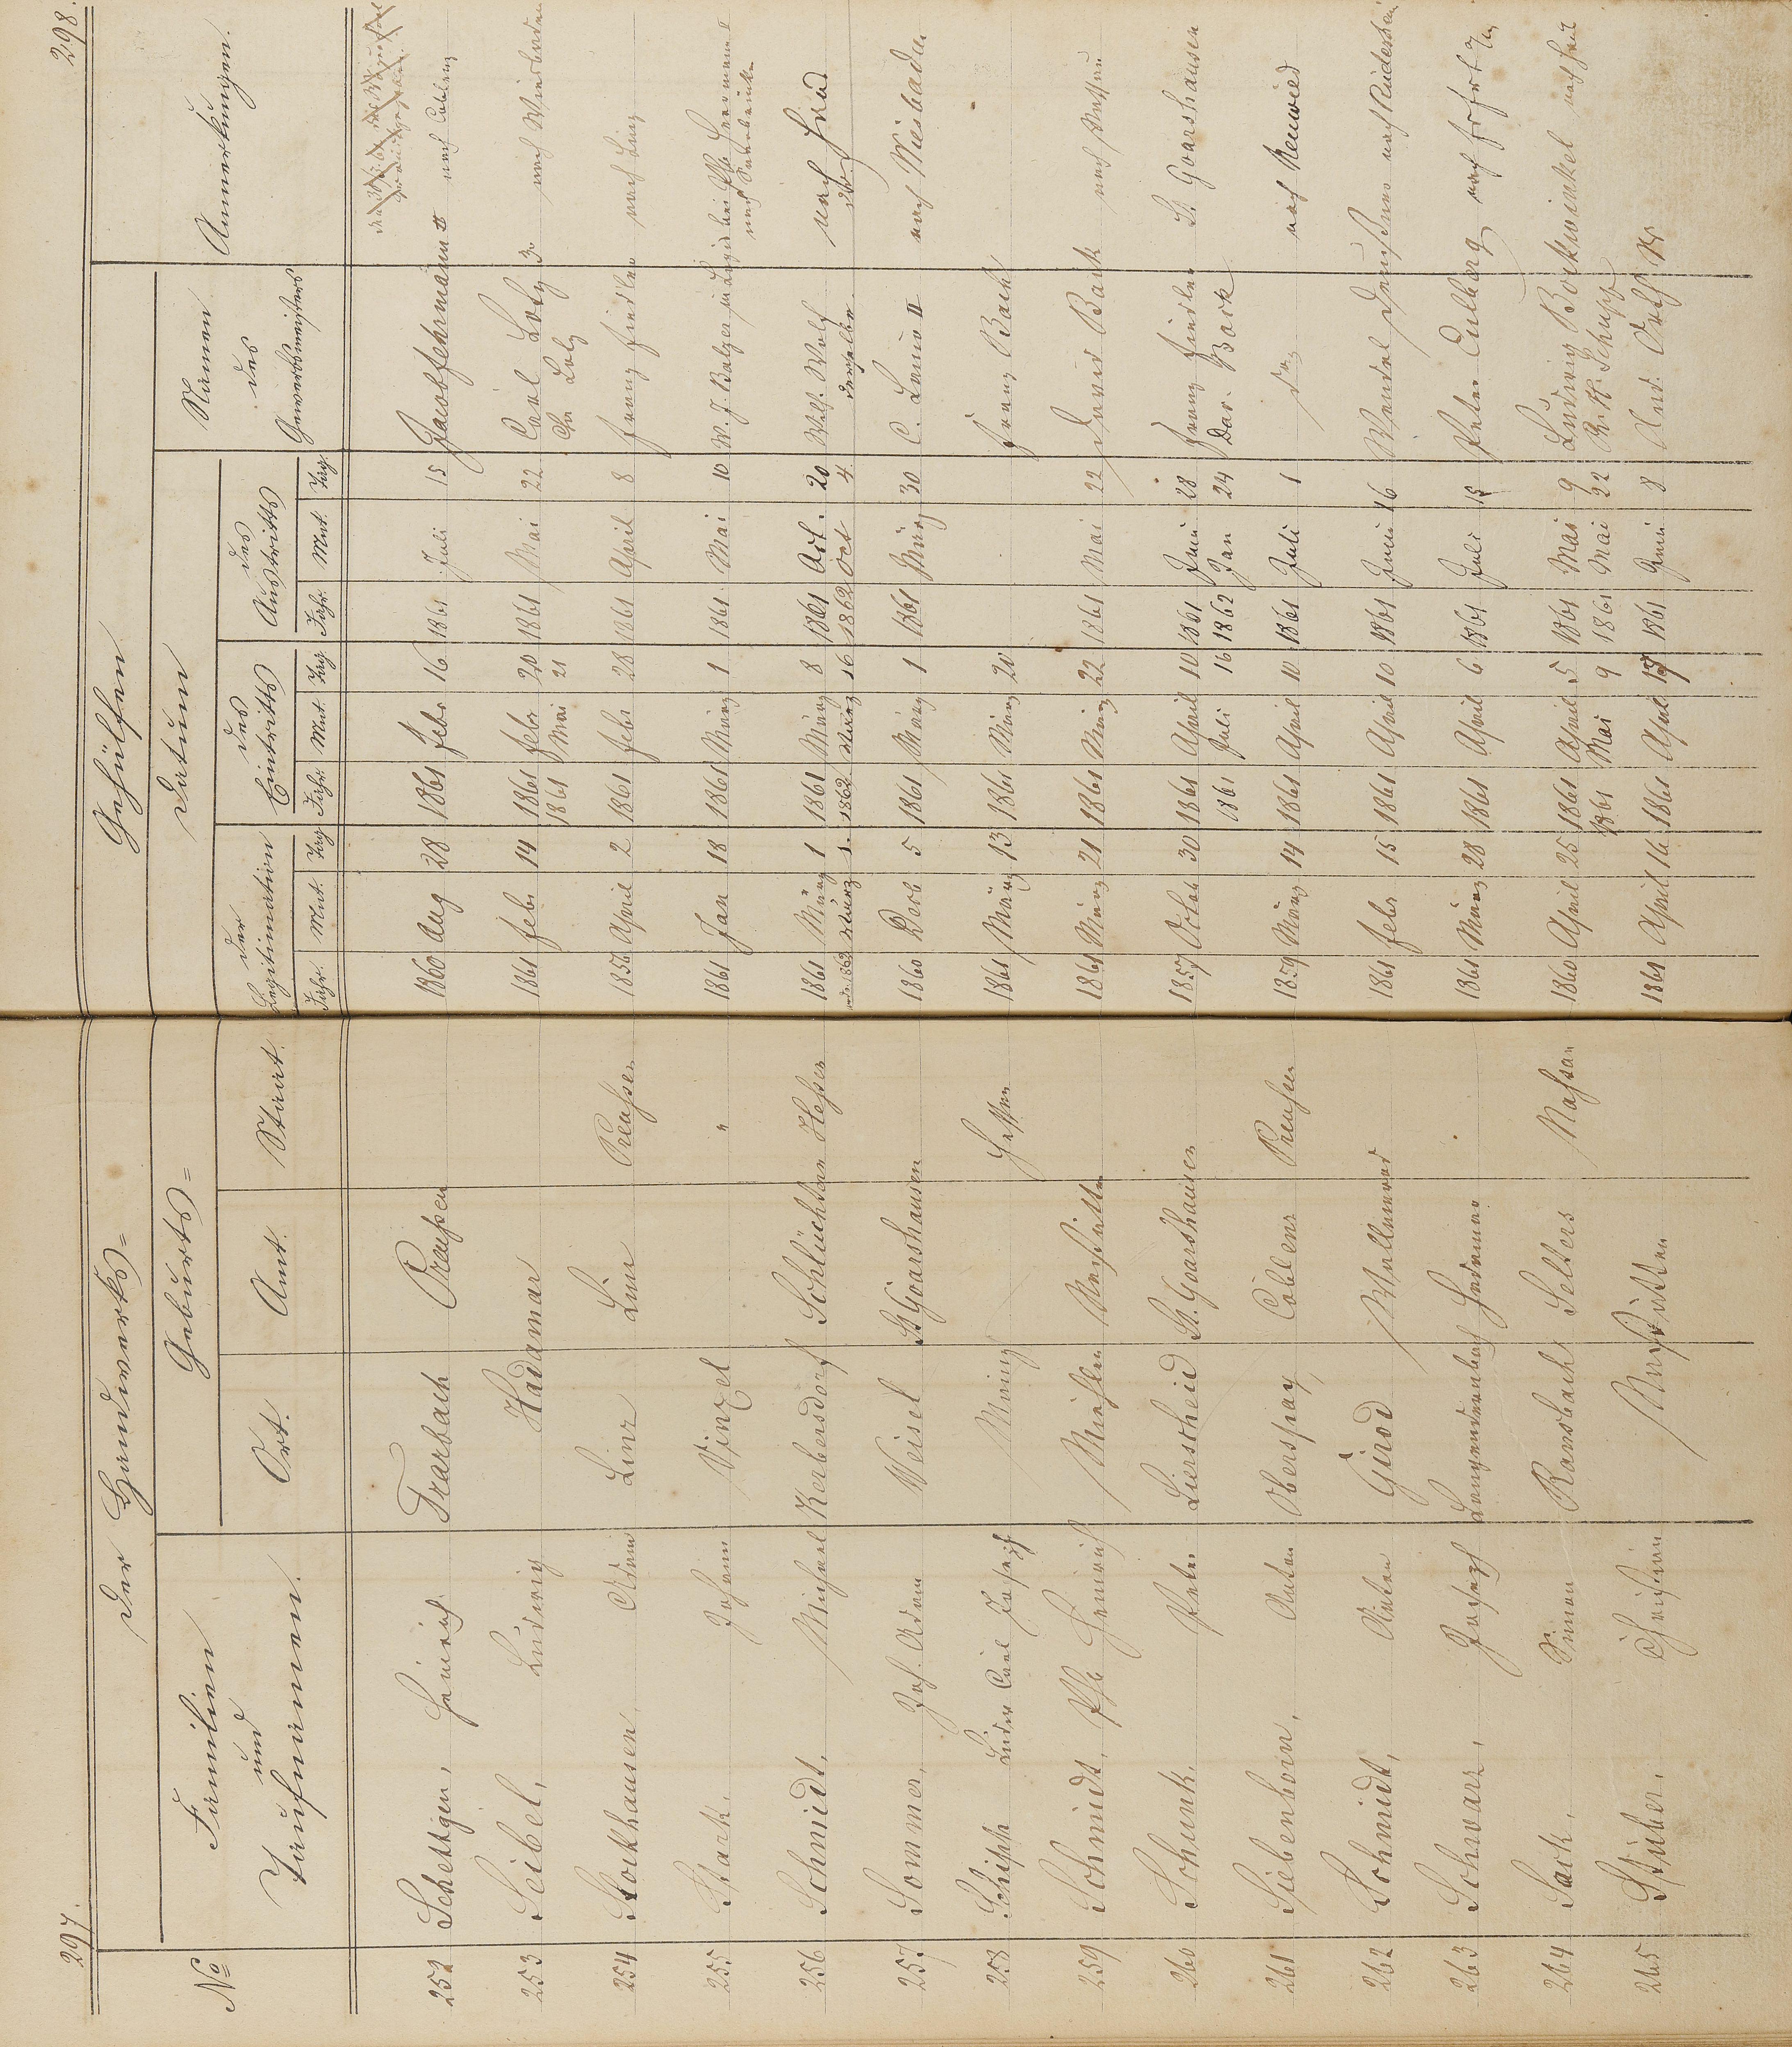 297.
298.
Der Handwerks=
Gehülfen
No
Familien
und
Taufnamen.
Geburts=
Ort.
Amt.
Staat.
Datum
der
Legitimation
des
Eintritts
des
Austritts
Jahr. Mnt. Tag
Jahr. Mnt. Tag
Jahr. Mnt. Tag.
Namen
des
Gewerbsmeisters
Anmerkungen.
252 Schettgen, Heinrich Trarbach Preußen 1860 Aug 28 1861 Febr 16 1861 Juli 15 Jacob Fehrmann II nach Coblenz
253 Seibel, Ludwig Hadamar 1861 Febr 14 1861 Febr 20 1861 Mai 22 Carl Lotz nach Wiesbaden
1861 Mai 21 Lotz
254 Stockhausen, Adam Linz Linz Preußen 1856 April 2 1861 Febr 28 1861 April 8 Franz Fiedler nach Linz
255 Stark, Johann Vinxel " 1861 Jan 18 1861 März 1 1861 Mai 10 W. J. Balzer
256 Schmidt, Michael Kerbersdorf Schlüchtern Heßen 1861 März 1 1861 März 8 1861 Oct. 20 Wilh. Wolf nach
1862 März 1. 1862 März 16 1862 Oct 4 derselbe
257 Sommer, Joh. Adam Weisel St. Goarshausen 1860 Decb 5 1861 März 1 1861 März 30 C. Lanio II nach Wiesbaden
258 Schipp Carl Joseph Mainz Hessen 1861 März 13 1861 März 20 Franz Back
259 Schmidt, Phil Heinrich Miehlen Nastätten 1861 März 21 1861 März 22 1861 Mai 22 David Back nach
260 Schunk, Peter Lierscheid St. Goarshausen 1857 Octob 30 1861 April 10 1861 Juni 28 Franz Fiedler St. Goarshausen
1861 Juli 16 1862 Jan 24 Dav. Back
261 Siebenborn, Anton Oberspay Coblenz Preußen 1859 März 14 1861 April 10 1861 Juli 1 nach Neuwied
262 Schmidt, Anton Girod Wallmerod 1861 Febr 15 1861 April 10 1861 Juni 16 Wendel nach Rüdesheim
263 Schwarz, Joseph Langendernbach Hadamar 1861 März 28 1861 April 6 1861 Juli 13 Peter Eulberg nach
264 Sack, Simon Ransbach Selters Naßau 1860 April 25 1861 April 5 1861 Mai 9 Ludwig Bockwinkel
1861 Mai 9 1861 Mai 22 Schupp
265 Stüber, Christian Nastätten 1861 April 16 1861 April 17 1861 Juni 8 And. Orth